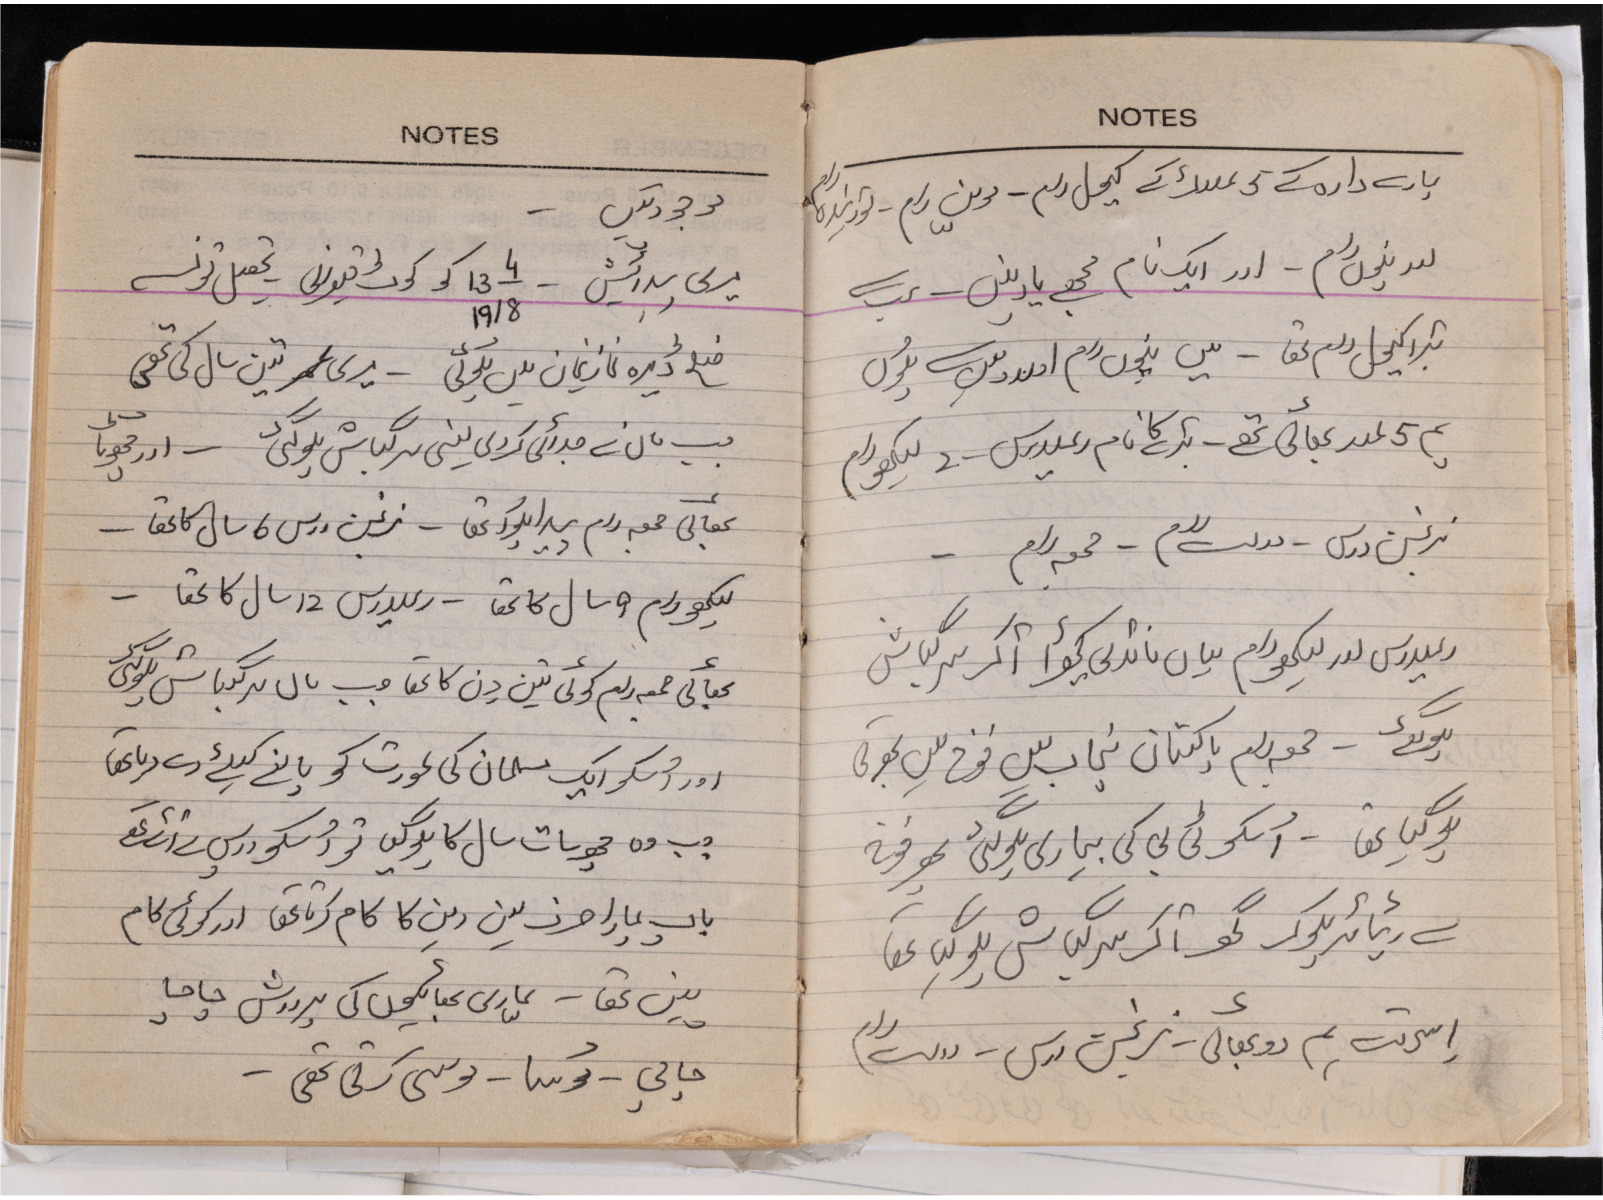 NOTES
ہمارے دادہ کے 5 عدد لڑکے کیچل رام - موہن رام - نورندہ رام
اور پنجوں رام - اور ایک نام مجھے یاد نہیں - سب سے
بڑا کیچل رام تھا - میں پنجوں رام اولاد میں سے ہوں
ہم 5 عدد بھائی تھے - بڑے کا نام رمیداس - 2 لیکھو رام
نرنجن داس - دولت رام - جمعہ رام -
رمیداس اور لیکھو رام یہاں انڈیا آکر سرگباش
ہو گئے - جمعہ رام پاکستان پنجاب میں فوج میں بھرتی
ہو گیا تھا - اُسکو ٹی بی کی بیماری ہو گئی پھر فوج
سے ریٹائر ہو کر گھر آکر سرگباش ہو گیا تھا
اِسوقت ہم دو بھائی - نرنجن داس - دولت رام
NOTES
موجود ہیں -
میری پیدائش - 13 4/1918 کو کوٹ قیصرانی تحصیل تونسہ
ضلع ڈیرہ غازیخان میں ہوئی - میری عمر تین سال کی تھی
جب ماں نے جدائی کر دی یعنی سرگباش ہو گئی - اور چھوٹا
بھائی جمعہ رام پیدا ہوا تھا - نرنجن داس 6 سال کا تھا -
لیکھو رام 9 سال کا تھا - رمیداس 12 سال کا تھا -
بھائی جمعہ رام کوئی تین دن کا تھا جب ماں سرگباش ہو گئی
اور اُسکو ایک مسلمان کی عورت کو پالنے کیلئے دے دیا تھا
جب وہ چھ سات سال کا ہو گیا تو اُسکو واپس لے آئے تھے
باپ ہمارا صرف لین دین کا کام کرتا تھا اور کوئی کام
نہیں تھا - ہماری بھائیوں کی پرورش چاچا
چاچی - مُوسا - موسی کرتی تھی -